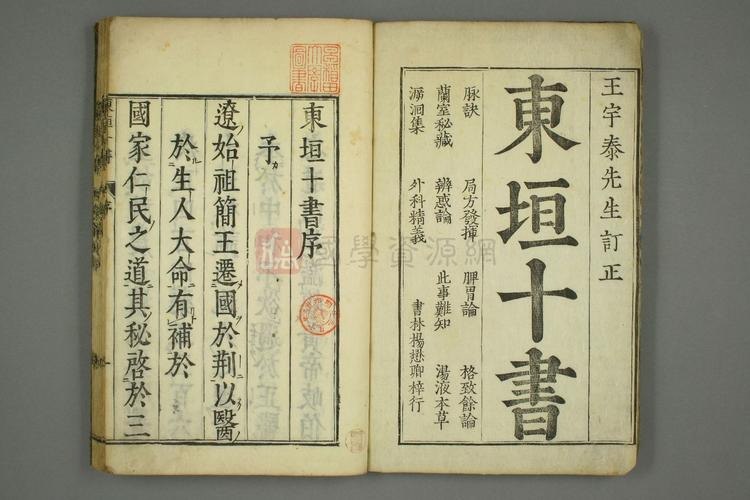 王宇泰先生訂正
東垣十書
脉訣 局方發揮 脾胃論 格致餘論
蘭室秘藏 辨惑論 此事難知 湯液本草
溯洄集 外科精義 書林楊懋卿梓行
東垣十書序
予カ
遼始祖簡王遷國於荆以醫
於生人大命有補於
國家仁民之道其秘啓於三
國學資源網